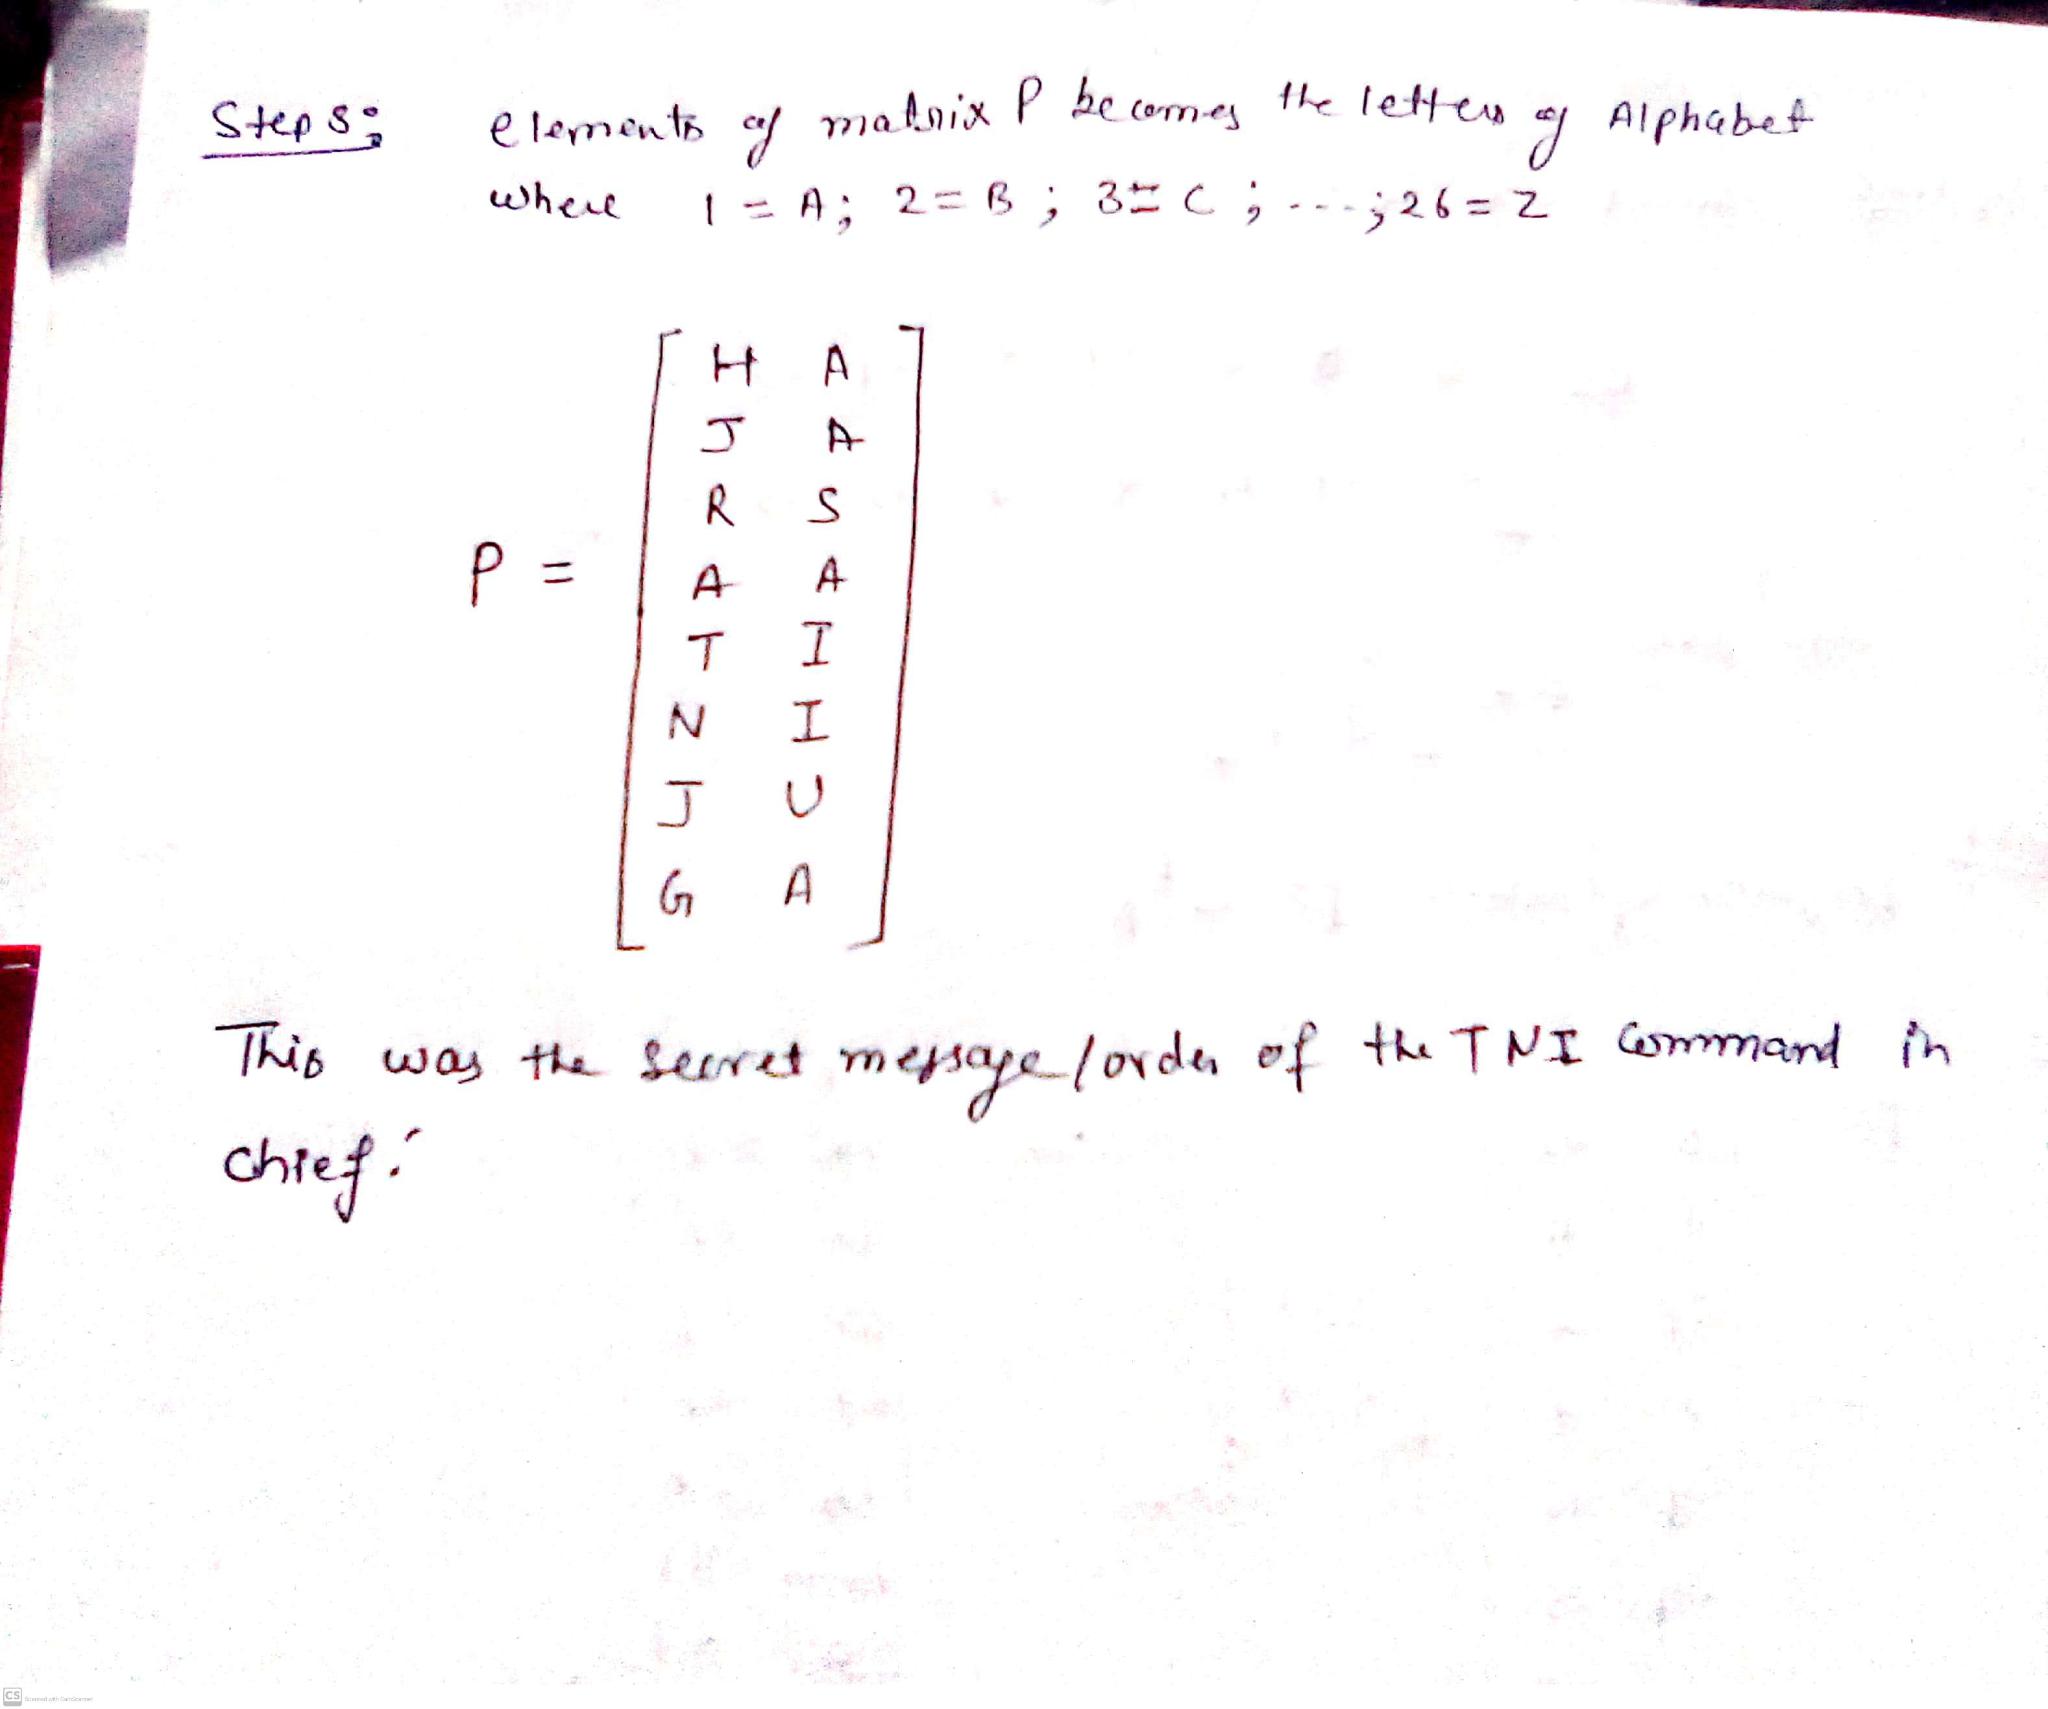 Step 8: elements of matrix P becomes the letters of Alphabet
where 1 = A; 2 = B; 3 = C; ---; 26 = Z
H A
J A
R S
P = A A
T I
N I
J U
G A
This was the secret message/order of the TNI Command in
chief.
CS Scanned with CamScanner